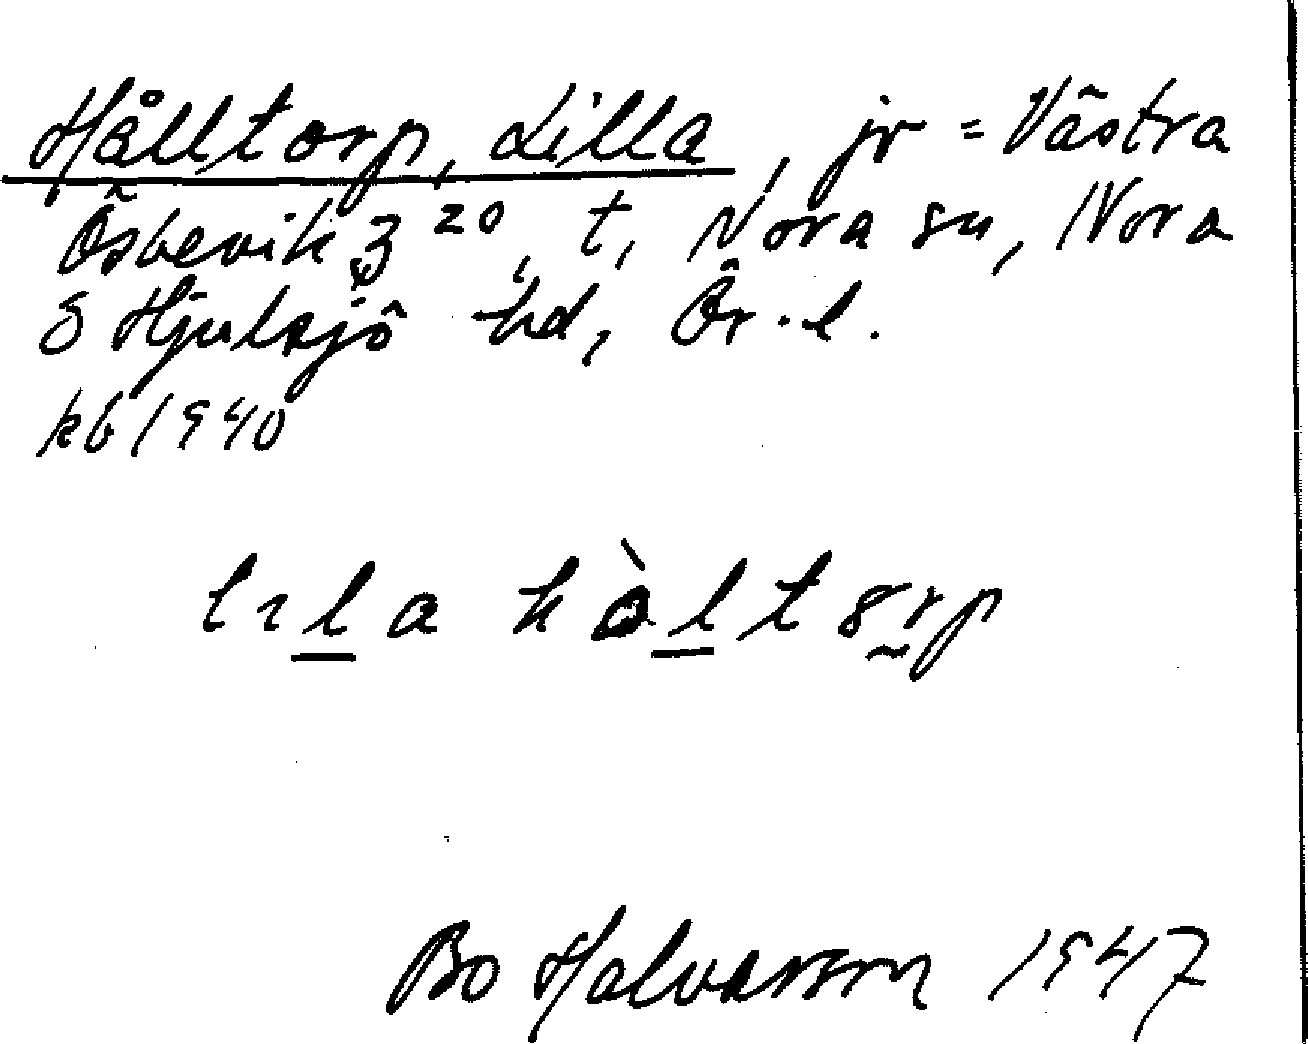 Hålltorp, Lilla, jr = Västra
Ösbevik 3 20, t, Nora sn, Nora
& Hjulsjö hd, Ör. l.
kb 1940
lɪla hòltɞrp
Bo Halvarson 1947